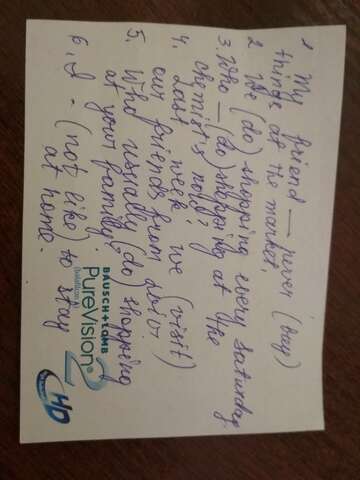 1 My friend — never (buy)
things at the market.
2 We (do) shopping every Saturday.
3. Who — (do) shopping at the
chemist's now?
4. Last week we (visit)
our friends from
5. Who usually (do) shopping
at your family?
6. I - (not like) to stay
at home.
BAUSCH + LOMB
PureVision 2 HD